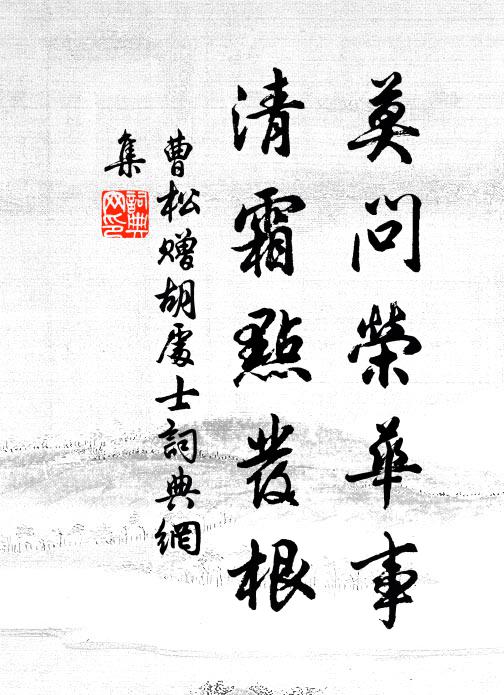 莫問榮華事
清霜點發根
曹松贈胡處士詞典網
集
詞典
网印